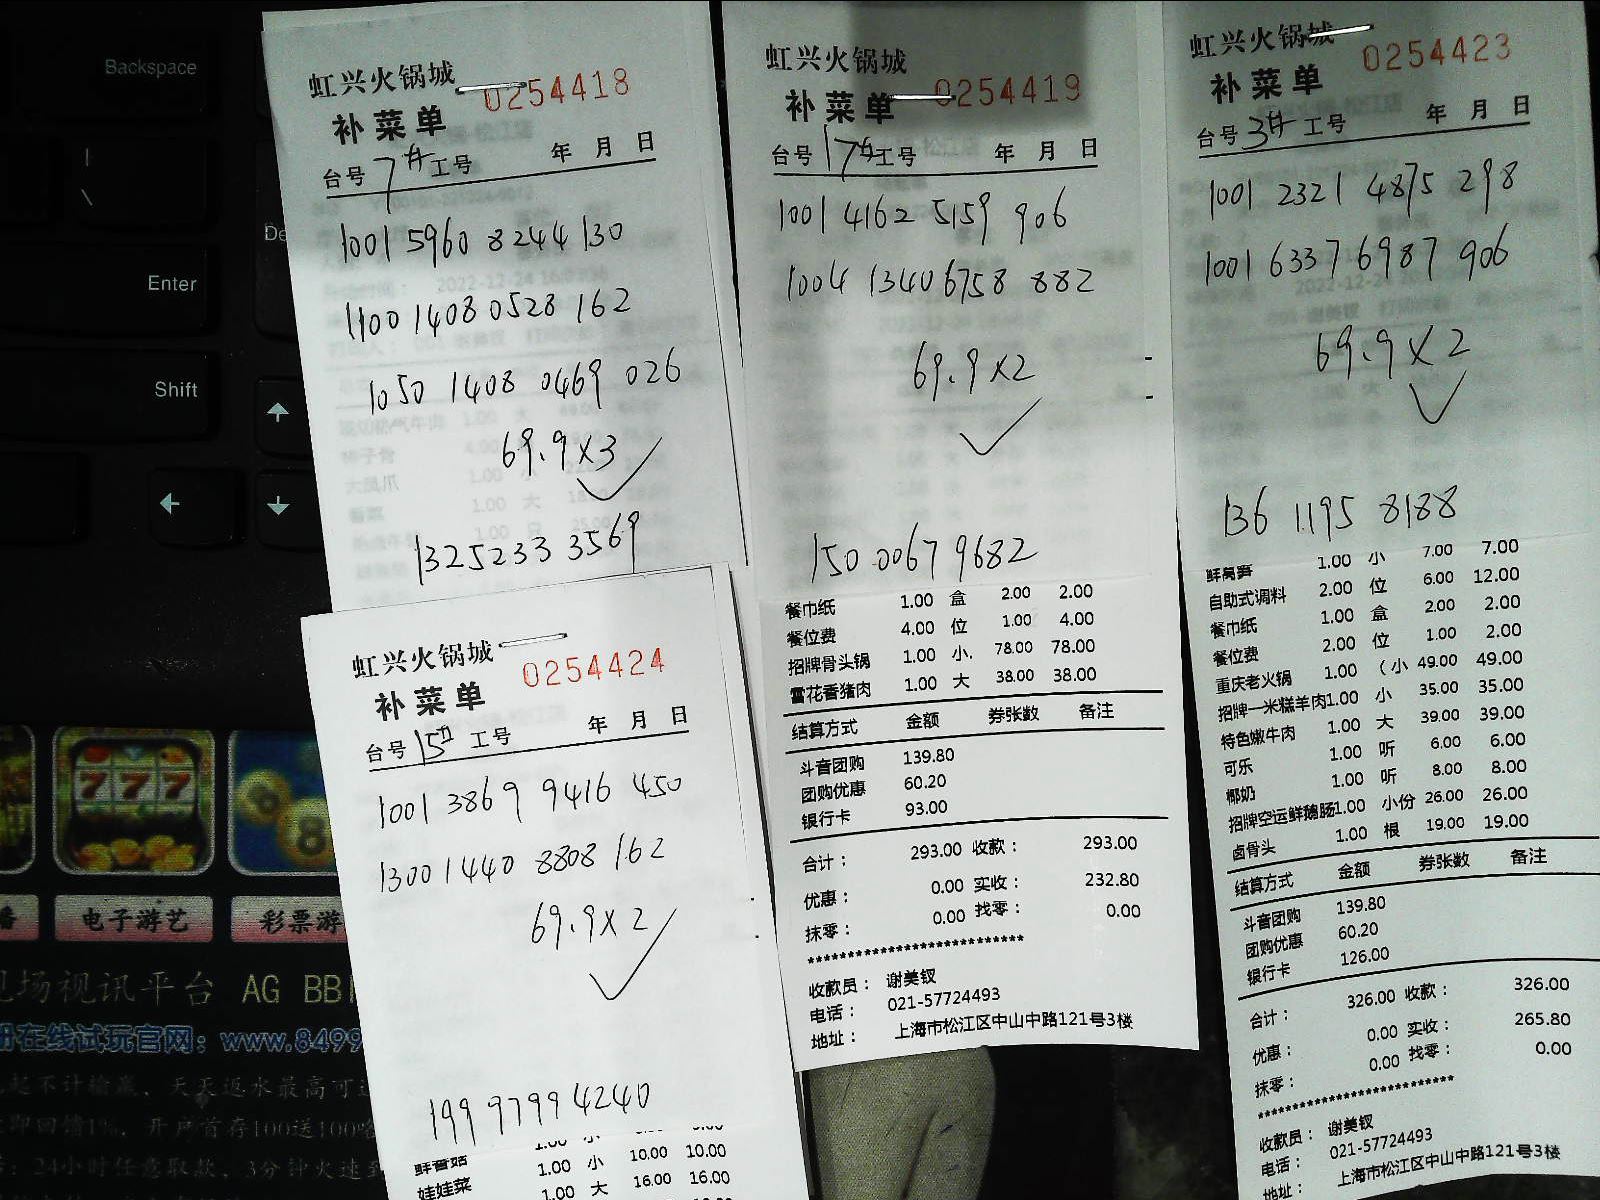 Backspace
Enter
Shift
虹兴火锅城
0254418
补菜单
台号 7# 工号 年 月 日
1001 5960 8244 130
1100 1408 0528 162
1050 1408 0469 026
69.9×3 ✓
1325233 3569
虹兴火锅城
0254419
补菜单
台号 17# 工号 年 月 日
1001 4162 5159 906
1004 1340 6758 882
69.9×2
✓
150 0067 9682
餐巾纸 1.00 盒 2.00 2.00
餐位费 4.00 位 1.00 4.00
招牌骨头锅 1.00 小. 78.00 78.00
雪花香猪肉 1.00 大 38.00 38.00
结算方式 金额 券张数 备注
斗音团购 139.80
团购优惠 60.20
银行卡 93.00
合计： 293.00 收款： 293.00
优惠： 0.00 实收： 232.80
抹零： 0.00 找零： 0.00
收款员： 谢美钗
电话： 021-57724493
地址： 上海市松江区中山中路121号3楼
虹兴火锅城
0254423
补菜单
台号 3# 工号 年 月 日
1001 2321 4875 298
1001 6337 6987 906
69.9×2
✓
136 1195 8188
鲜莴笋 1.00 小 7.00 7.00
自助式调料 2.00 位 6.00 12.00
餐巾纸 1.00 盒 2.00 2.00
餐位费 2.00 位 1.00 2.00
重庆老火锅 1.00 （小 49.00 49.00
招牌一米糕羊肉1.00 小 35.00 35.00
特色嫩牛肉 1.00 大 39.00 39.00
可乐 1.00 听 6.00 6.00
椰奶 1.00 听 8.00 8.00
招牌空运鲜鹅肠1.00 小份 26.00 26.00
卤骨头 1.00 根 19.00 19.00
结算方式 金额 券张数 备注
斗音团购 139.80
团购优惠 60.20
银行卡 126.00
合计： 326.00 收款： 326.00
优惠： 0.00 实收： 265.80
抹零： 0.00 找零： 0.00
收款员： 谢美钗
电话： 021-57724493
地址： 上海市松江区中山中路121号3楼
虹兴火锅城
0254424
补菜单
台号 15# 工号 年 月 日
1001 3869 9416 450
1300 1440 8808 162
69.9×2
✓
199 9799 4240
鲜香菇 1.00 小
娃娃菜 1.00 小 10.00 10.00
1.00 大 16.00 16.00
777
8
电子游艺
彩票游
现场视讯平台 AG BBI
册在线试玩官网：www.8499
起不计输赢，天天返水最高可
即回馈1%，开户首存100送100
24小时任意取款，3分钟火速到